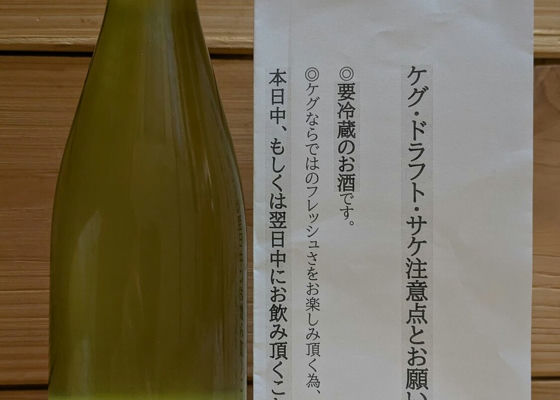 ケグ・ドラフト・サケ注意点とお願い
◎要冷蔵のお酒です。
◎ケグならではのフレッシュさをお楽しみ頂く為、
本日中、もしくは翌日中にお飲み頂くこと